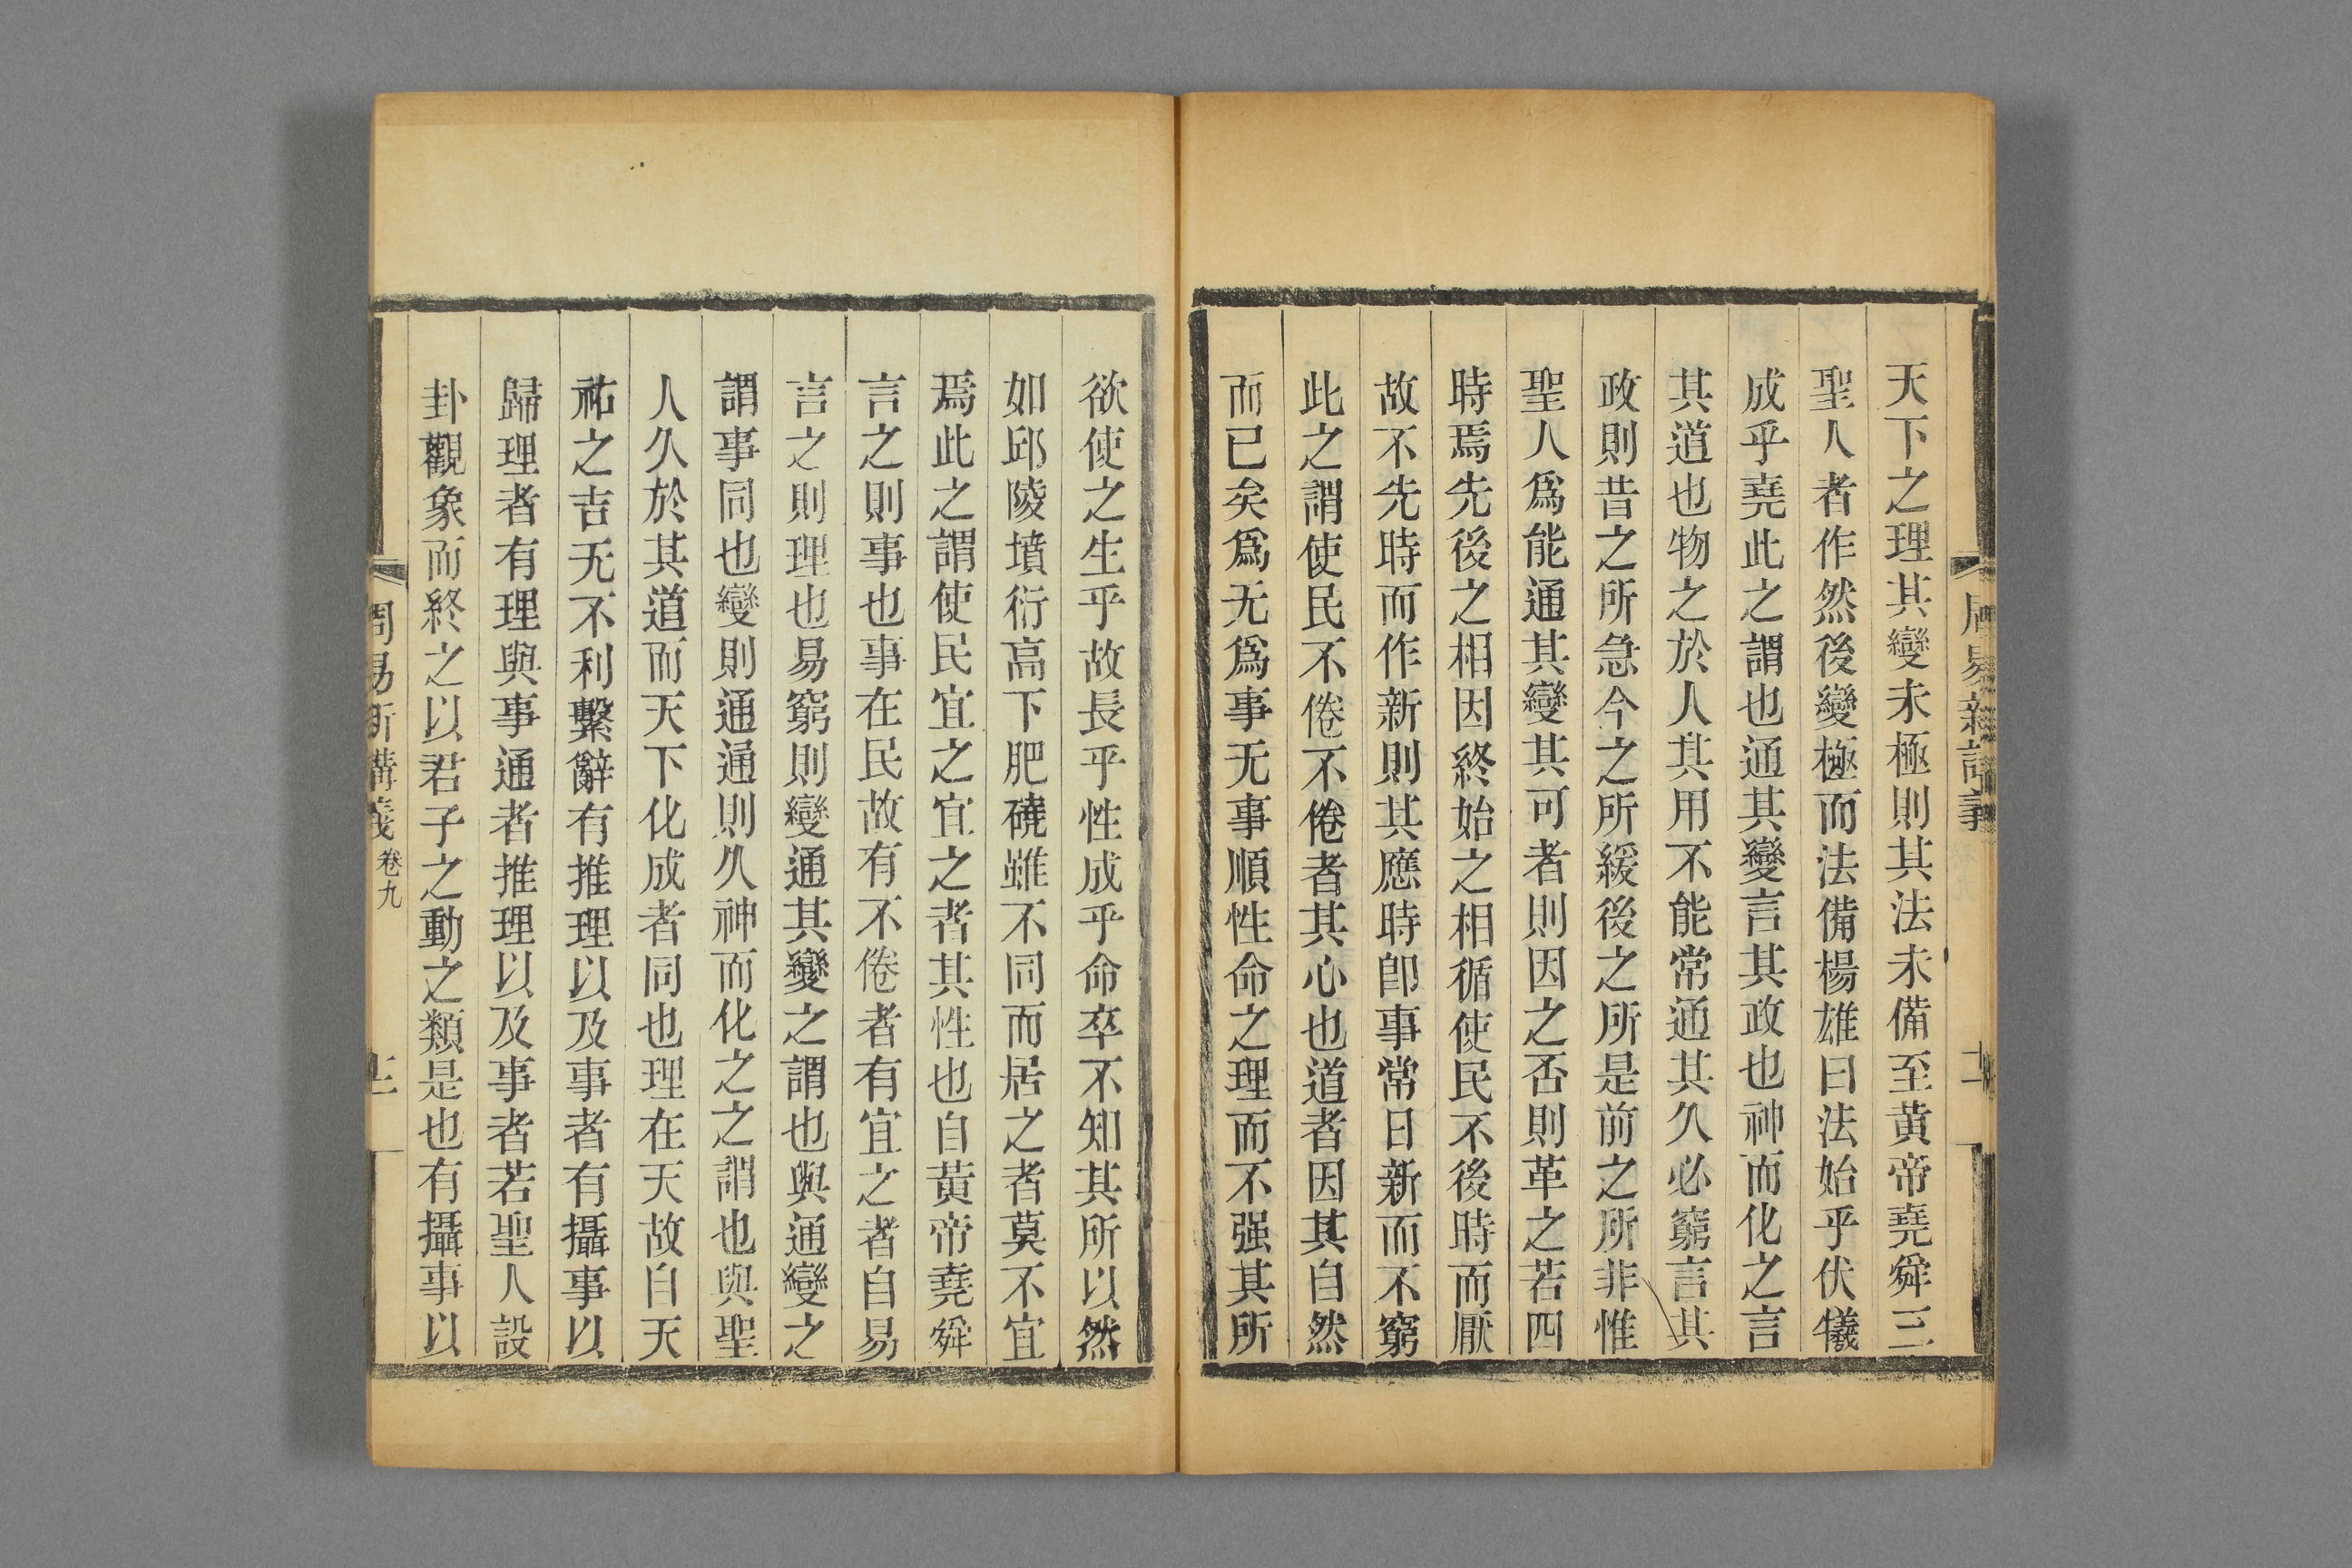 天下之理其變未極則其法未備至黃帝堯舜三
聖人者作然後變極而法備楊雄曰法始乎伏犧
成乎堯此之謂也通其變言其政也神而化之言
其道也物之於人其用不能常通其久必窮言其
政則昔之所急今之所緩後之所是前之所非惟
聖人爲能通其變其可者則因之否則革之若四
時焉先後之相因終始之相循使民不後時而厭
故不先時而作新則其應時卽事常日新而不窮
此之謂使民不倦不倦者其心也道者因其自然
而已矣爲无爲事无事順性命之理而不强其所
欲使之生乎故長乎性成乎命卒不知其所以然
如邱陵墳衍高下肥磽雖不同而居之者莫不宜
焉此之謂使民宜之宜之者其性也自黃帝堯舜
言之則事也事在民故有不倦者有宜之者自易
言之則理也易窮則變通其變之謂也與通變之
謂事同也變則通通則久神而化之之謂也與聖
人久於其道而天下化成者同也理在天故自天
祐之吉无不利繫辭有推理以及事者有攝事以
歸理者有理與事通者推理以及事者若聖人設
卦觀象而終之以君子之動之類是也有攝事以
周易新講義 卷九